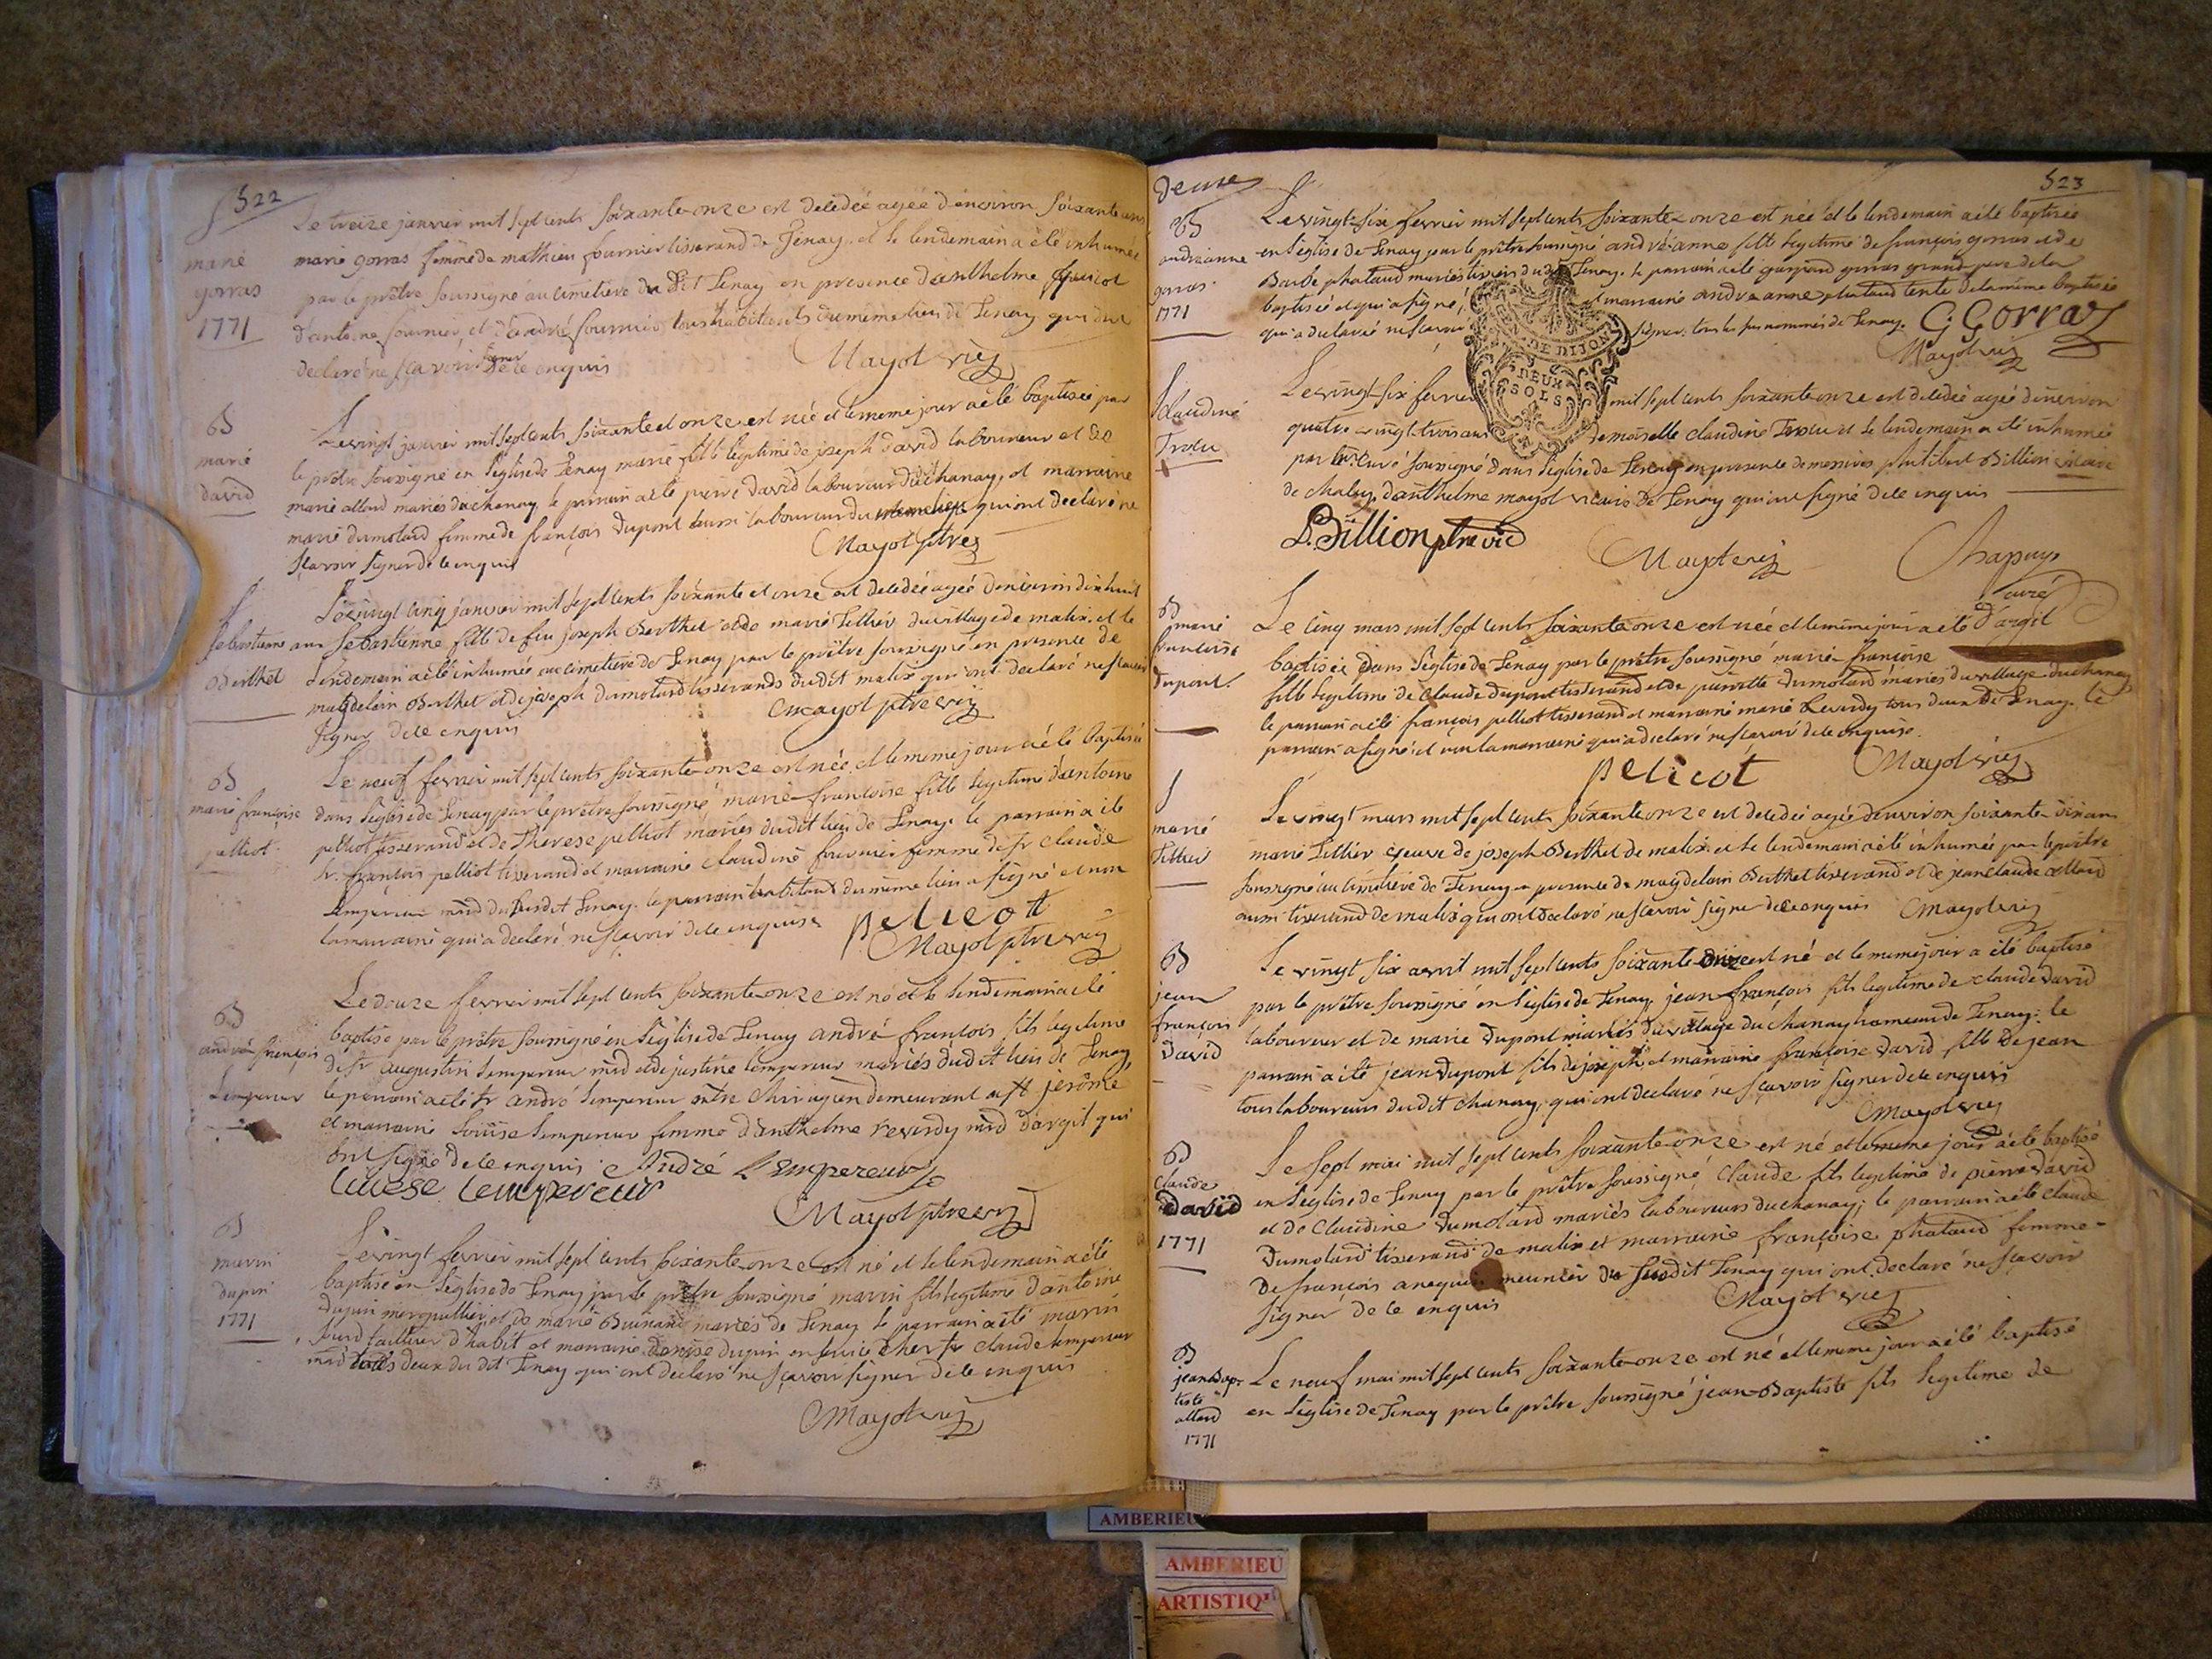 522
S
marie
gorras
1771
Le treize janvier mil sept cents soixante-onze est decedée agée d'environ soixante ans
marie gorras femme de mathieu fournier tisserand de Tenay, et le lendemain a été inhumée
par le prêtre soussigné au cimetiere du dit Tenay en presence d'anthelme
d'antoine fournier, et d'andré fournier tous habitants du meme lieu de Tenay qui ont
declaré ne sçavoir signer de ce enquis
Mayol vic
B
marie
david
Le vingt janvier mil sept cents soixante et onze est née et le meme jour a été baptisée par
le prêtre soussigné en l'église de Tenay marie fille legitime de joseph david laboureur et de
marie allard mariés du chanay, le parrain a été pierre david laboureur du chanay, et marraine
marie dumolard femme de françois dupont aussi laboureur du qui ont declaré ne
sçavoir signer de ce enquis
Mayol ptre vic
S
sebastienne
Berthet
Le vingt cinq janvier mil sept cents soixante et onze est decedée agée d'environ dix huit
ans sebastienne fille de feu joseph Berthet et de marie Tellier du village de malix, et le
lendemain a été inhumée au cimetiere de Tenay par le prêtre soussigné en presence de
magdelain Berthet et de joseph dumolard tisserands dudit malix qui ont declaré ne sçavoir
signer de ce enquis
Mayol ptre vic
B
marie françoise
pelliot
Le neuf fevrier mil sept cents soixante-onze est née et le meme jour a été baptisée
dans l'église de Tenay par le prêtre soussigné marie-françoise fille legitime d'antoine
pelliot tisserand et de Therese pelliot mariés dudit lieu de Tenay. le parrain a été
sr. françois pelliot tisserand et marraine claudine fournier femme de sr claude
Lempereur md du susdit Tenay. le parrain du même lieu a signé et non
la marraine qui a declaré ne sçavoir de ce enquise
pelicot
Mayol ptre vic
B
andré françois
Lempereur
Le douze fevrier mil sept cents soixante-onze est né et le lendemain a été
baptisé par le prêtre soussigné en l'église de Tenay andré françois fils legitime
de sr augustin Lempereur md et de justine Lempereur mariés dudit lieu de Tenay,
le parrain a été sr andré Lempereur mtre chirugien demeurant a st jerôme
et marraine Loüise Lempereur femme d'anthelme reverdy md d'argit qui
ont signé de ce enquis André Lempereur
Lempereur
Mayol ptre vic
B
marin
dupin
1771
Le vingt fevrier mil sept cents soixante-onze est né et le lendemain a été
baptisé en l'église de Tenay par le prêtre soussigné marin fils legitime d'antoine
dupin et de marie mariés de Tenay le parrain a été marin
tailleur d'habit et marraine denise dupin en service chez sr claude Lempereur
md tous deux du dit Tenay qui ont declaré ne sçavoir signer de ce enquis
Mayol vic
523
B
andréanne
gorras
1771
Le vingt-six fevrier mil sept cents soixante-onze est née et le lendemain a été baptisée
en l'église de Tenay par le prêtre soussigné andré-anne fille legitime de françois gorras et de
Barbe phataud mariés dudit Tenay. le parrain a été gaspard gorras grand pere de la
baptisée et qui a signé, et marraine andréanne phataud tante de la même baptisée
qui a declaré ne sçavoir signer. tous les susnommés de Tenay.
G Gorraz
Mayol vic
DE DIJON
DEUX
SOLS
S
claudine
Trocu
Le vingt-six fevrier mil sept cents soixante-onze est decedée agée d'environ
quatre-vingt-trois ans demoiselle claudine Trocu et le lendemain a été inhumée
par le curé soussigné dans l'église de Tenay en presence de messires philibert Billion vicaire
de chaley, d'anthelme mayol vicaire de Tenay qui ont signé de ce enquis
P. Billion ptre vic
Mayol vic
Chapuys
curé
d'argit
B
marie
françoise
dupont.
Le cinq mars mil sept cents soixante-onze est née et le meme jour a été
baptisée dans l'église de Tenay par le prêtre soussigné marie-françoise
fille legitime de claude dupont tisserand et de pierrette dumolard mariés du village du chanay
le parrain a été françois pelliot tisserand et marraine marie Reverdy tous deux de Tenay. le
parrain a signé et non la marraine qui a declaré ne sçavoir de ce enquise.
pelicot
Mayol vic
S
marie
Tellier
Le vingt mars mil sept cents soixante-onze est decedée agée d'environ soixante-dix ans
marie Tellier veuve de joseph Berthet de malix. et le lendemain a été inhumée par le prêtre
soussigné au cimetiere de Tenay en presence de magdelain Berthet tisserand et de jean claude allard
aussi tisserand de malix qui ont declaré ne sçavoir signer de ce enquis
Mayol vic
B
jean
françois
David
Le vingt six avril mil sept cents soixante-onze est né et le meme jour a été baptisé
par le prêtre soussigné en l'église de Tenay, jean-françois fils legitime de claude David
laboureur et de marie dupont mariés du village du chanay hameau de Tenay; le
parrain a été jean dupont fils de joseph, et marraine françoise david fille de jean
tous laboureurs dudit chanay, qui ont declaré ne sçavoir signer de ce enquis
Mayol vic
B
Claude
David
1771
Le sept mai mil sept cents soixante-onze est né et le meme jour a été baptisé
en l'église de Tenay par le prêtre soussigné Claude fils legitime de pierre David
et de Claudine Dumolard mariés laboureurs du chanay; le parrain a été claude
Dumolard tisserand de malix et marraine françoise phataud femme
de françois meunier du susdit Tenay qui ont declaré ne sçavoir
signer de ce enquis
Mayol vic
B
jean Bap-
tiste
allard
1771
Le neuf mai mil sept cents soixante-onze est né et le meme jour a été baptisé
en l'église de Tenay par le prêtre soussigné jean-Baptiste fils legitime de
AMBERIEU
AMBERIEU
ARTISTIQ